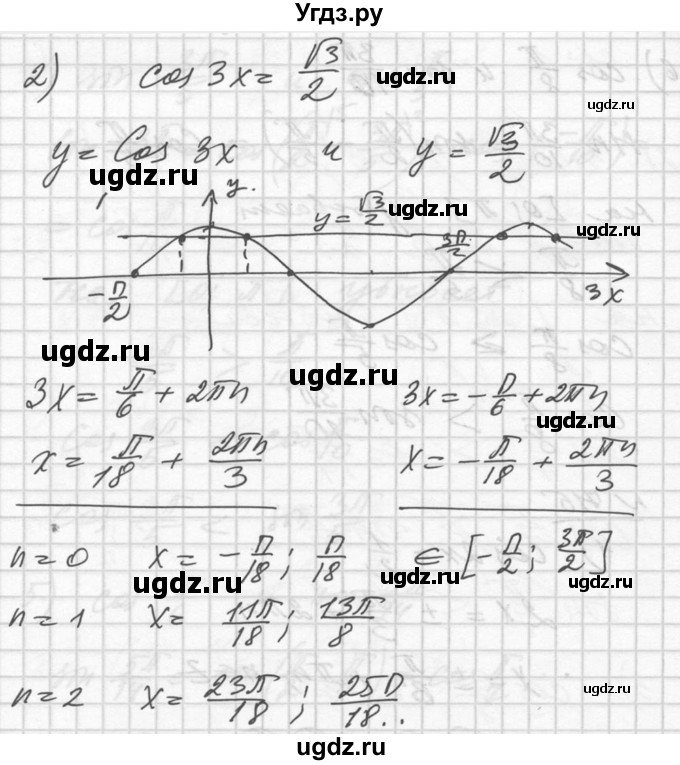 Угдз.ру
2) cos 3x = √3/2 ugdz.ru ugdz.ru
y = Cos 3x и y = √3/2
ugdz.ru ugdz.ru
y. y = √3/2 ugdz.ru
-π/2 3π/2 3x
ugdz.ru ugdz.ru
3x = π/6 + 2πn 3x = -π/6 + 2πn
ugdz.ru
x = π/18 + 2πn/3 x = -π/18 + 2πn/3
ugdz.ru ugdz.ru
n = 0 x = -π/18; π/18 ∈ [-π/2; 3π/2]
ugdz.ru ugdz.ru ugdz.ru
n = 1 x = 11π/18; 13π/8
n = 2 x = 23π/18; 25π/18.. ugdz.ru
ugdz.ru ugdz.ru
ugdz.ru